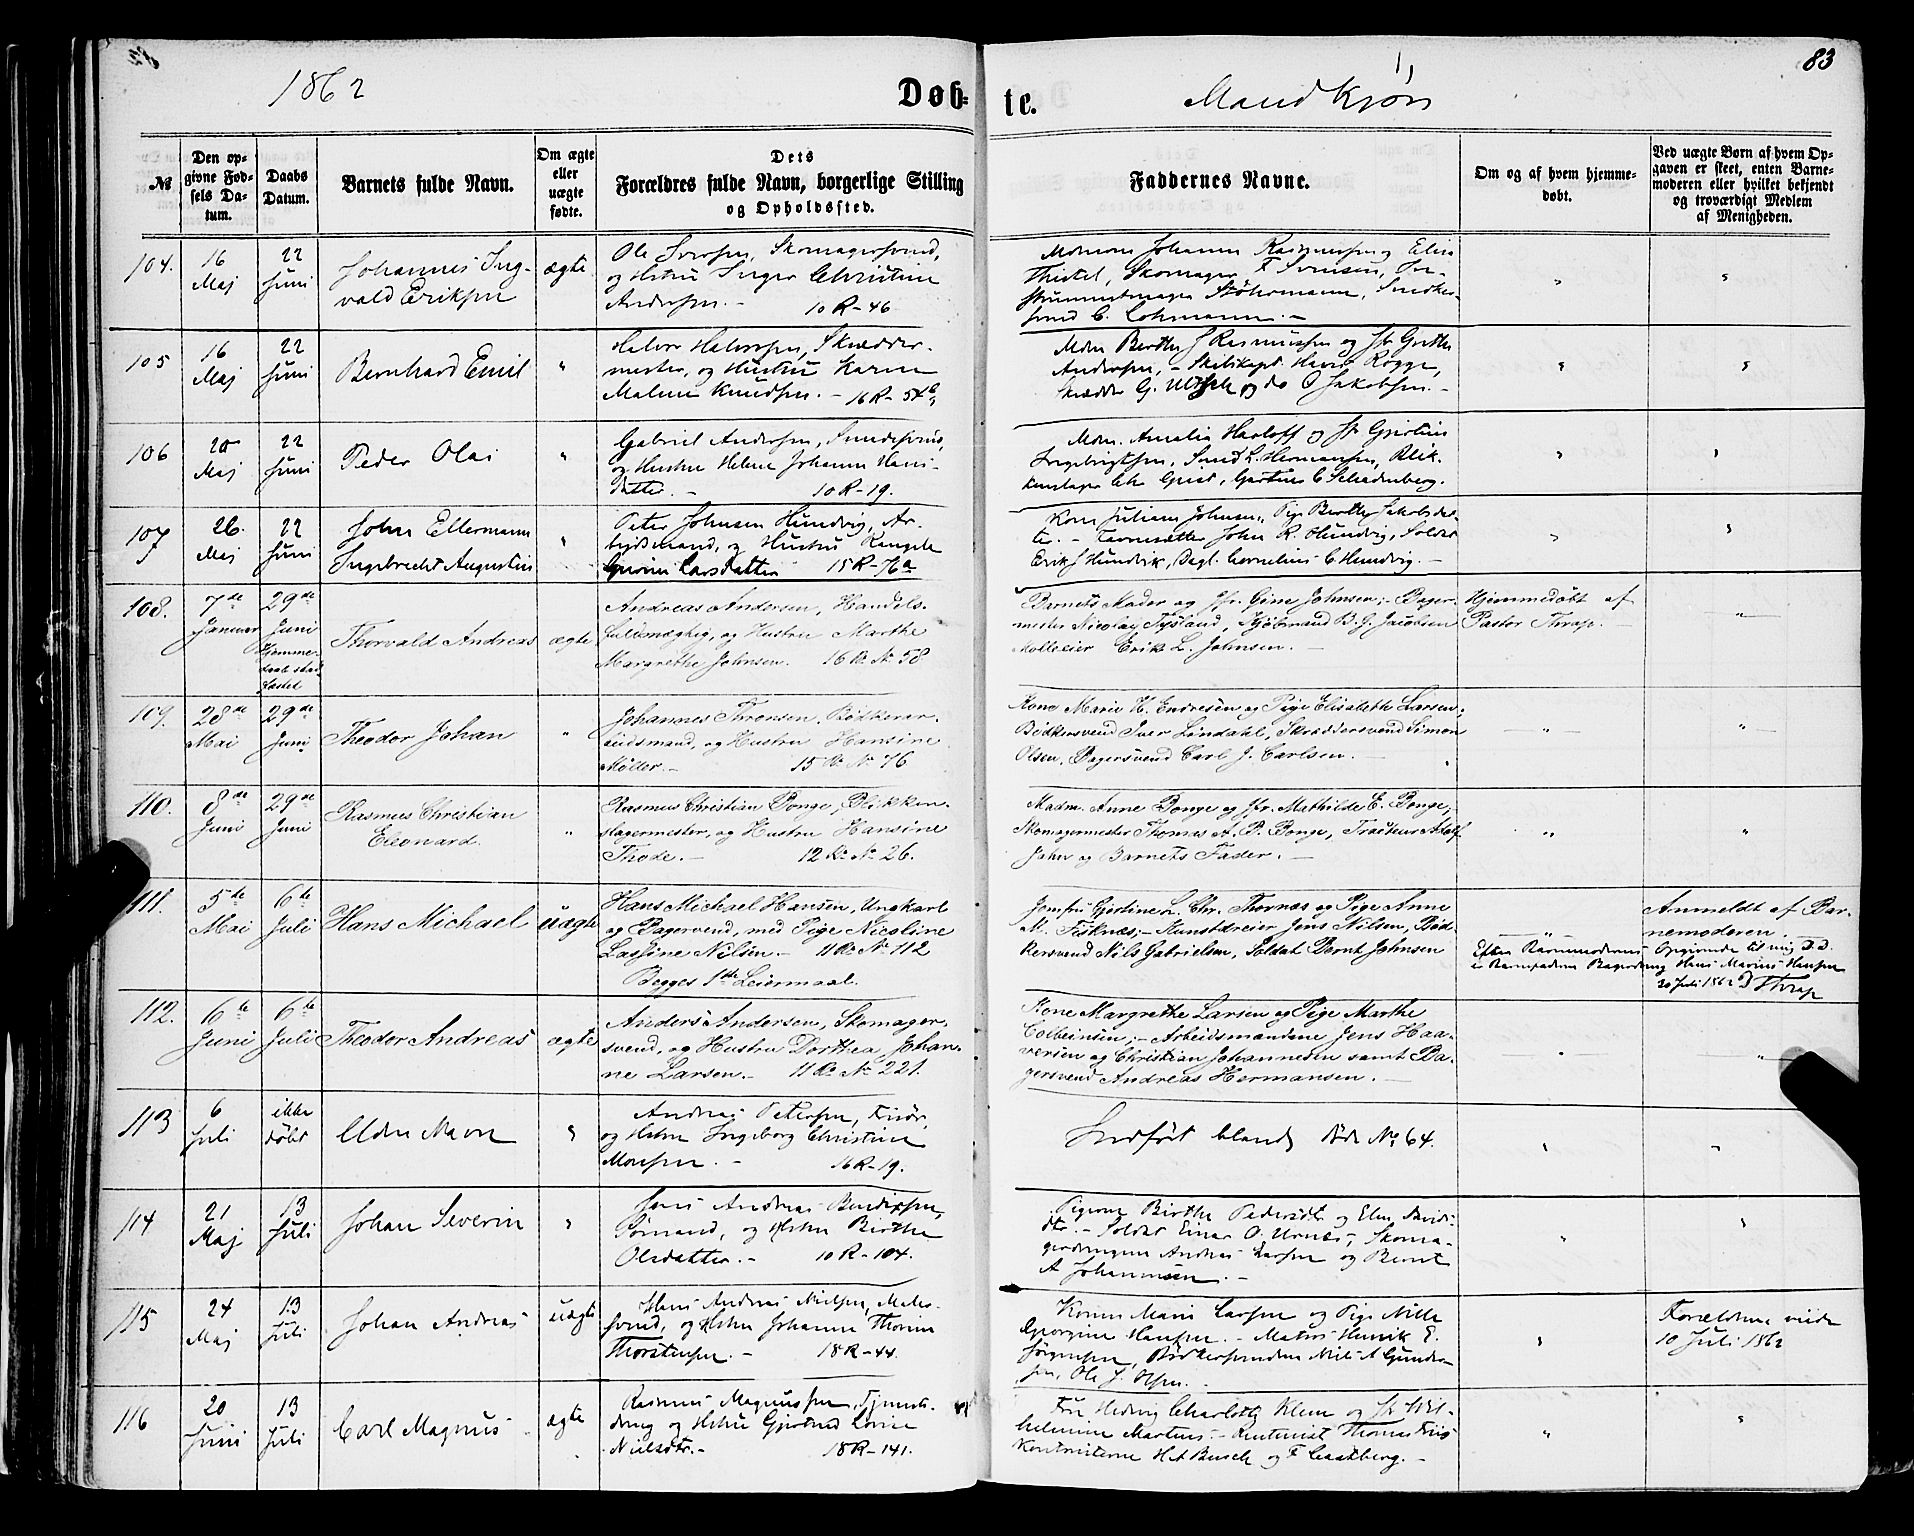 1862
Døb-
te.
Mandkjøn
83
№
Den op-
givne Fød-
sels Da-
tum.
Daabs
Datum.
Barnets fulde Navn.
Om ægte
eller
uægte
fødte.
Dets
Forældres fulde Navn, borgerlige Stilling
og Opholdssted.
Faddernes Navne.
Om og af hvem hjemme-
døbt.
Ved uægte Børn af hvem Op-
gaven er skeet, enten Barne-
moderen eller hvilket bekjendt
og troværdigt Medlem
af Menigheden.
104.
16
Maj
22
Juni
Johannes Ing-
vald Eriksen
ægte
Ole Iversen, Skomagersvend,
og Hstru Inger Christine
Andersen. - 10 R - 46
Johanna Rasmussen og Elise
Thistel, Skomager F Svensen, In-
strumentmager Stöhrmann, Snedker-
svend C. Lohmann. -
105
16
Maj
22
Juni
Bernhard Emil
"
Halvor Halvorsen, Skrædder-
mester, og Hustru Karen
Malene Knudsen. - 16 R - 54 b
Mdm Berthe S Rasmussen og Jfr Grethe
Andersen, - Skibskapt. Hans Rogge,
Skrædder G. og do O Jakobsen. -
106
20
Maj
22
Juni
Peder Olai
"
Gabriel Andersen, Smedesvend,
og Hustru Helene Johanne Hans-
datter. - 10 R - 19.
Mdm. Amalia Harloff og Jfr
Ingebrigtsen, Smed L. Hermansen, Blik-
kenslager Chr Gjest, Gartner C Schadenberg.
107
26.
Maj
22
Juni
John Ellermann
Ingebrecht Augustin
"
Peter Johnsen Hundvig, Ar-
bejdsmand, og Hustru
Gurine Larsdatter 15 R - 76 a
Kone Juliane Johnsen, Pige Berthe Jakobsdat-
ter. - John R. Hundvig, Soldat
Erik J Hundvik, Dagl. Cornelius C Hundvig. -
108.
7de
Januar
29de
Juni
Hjemme-
daab stad-
fæstet
Thorvald Andreas
ægte
Andreas Andersen, Handels-
fuldmægtig, og Hustru Marthe
Margrethe Johnsen. 16 R. № 58
Barnets Moder og Jfr. Gine Johnsen; - Bager-
mester Nicolay Tysland, Kjöbmand B. G. Jacobsen
Mölleeier Erik L. Johnsen. -
Hjemmedöbt af
Pastor Thrap.
"
109.
28de
Mai
29de
Juni
Theodor Johan
"
Johannes Thronsen, Bödkerar-
beidsmand, og Hustru Hansine
Möller. - 15 R. № 76
Kone Marie H. Endresen og Pige Elisabeth Larsen;
Bödkersvend Iver Lindahl, Skræddersvend Simon
Olsen, Bagersvend Carl J. Carlsen. -
"
"
110.
8de
Juni
29de
Juni
Rasmus Christian
Eleonard.
"
Rasmus Christian Ponge, Blikken-
slagermester, og Hustru Hansine
Thode. - 12 R. № 26.
Madm. Anne Ponge og Jfr. Mathilde E. Ponge;
Skomagermester Thomas A. P. Ponge, Adolf
og Barnets Fader. -
"
"
111.
5te
Mai
6te
Juli
Hans Michael
uægte
Hans Michael Hansen, Ungkarl
og Bagersvend, med Pige Nicoline
Lassine Nilsen. - 11 R. № 112
Begges 1ste Leiermaal.
Jomfru Gjertine L. Chr. Thornæs og Pige Anne
M. Fisknæs; - Kunstdreier Jens Nilsen, Böd-
kersvend Nils Gabrielsen, Soldat Bernt Johnsen
"
Anmeldt af Bar-
nemoderen.
Efter Barnemoderens Opgivende til mig D. D.
er Barnefaderen Bagerdreng Hans Marius Hansen
30 Juli 1862 D Thrap
112.
6te
Juni
6te
Juli
Theodor Andreas
ægte
Anders Andersen, Skomager-
svend, og Hustru Dorthea Johan-
ne Larsen. - 11 R. № 221.
Kone Margrethe Larsen og Pige Marthe
Colbeinsen; - Arbeidsmændene Jens Haa-
versen og Christian Johannesen samt Ba-
gersvend Andreas Hermansen. -
"
"
113
6
Juli
ikke
döbt
Uden Navn
"
Andreas Petersen, Frisör,
og Hstru Ingeborg Christine
Monsen. - 16 R - 19.
Indfört blandt döde № 64.
"
"
114
21
Maj
13
Juli
Johan Severin
"
Jens Andreas Bendixsen,
Sömand, og Hstru Birthe
Olsdatter. - 10 R - 104.
Pigerne Birthe Pedersdtr og Elen Davids-
dtr. - Soldat Einar O. Urnæs, Skoma-
gerdrengene Andreas Larsen og Bernt
A Johannesen. -
"
"
115
24
Maj
13
Juli
Johan Andreas
uægte
Hans Andreas Nielsen, Maler-
svend, og Hstru Johanne Thorine
Thorstensen. - 18 R - 44.
Konen Marie Larsen og Pige Nille
Georgine Hansen. - Matros Henrik E.
Jörgensen, Bödkersvendene Nils A Gunder-
sen, Ole J. Olsen. -
"
Forældrene viede
10 Juli 1862
116
20
Juni
13
Juli
Carl Magnus
ægte
Rasmus Magnussen, Tjeneste-
dreng og Hstru Gjertrud Lovise
Nielsdtr. - 18 R - 141.
Fru Hedvig Charlotte Klem og Jfr Wil-
helmine Martens. - Rentenist Thomas Friis
Kontoristerne H A Busch og F Gaatzberg. -
"
"